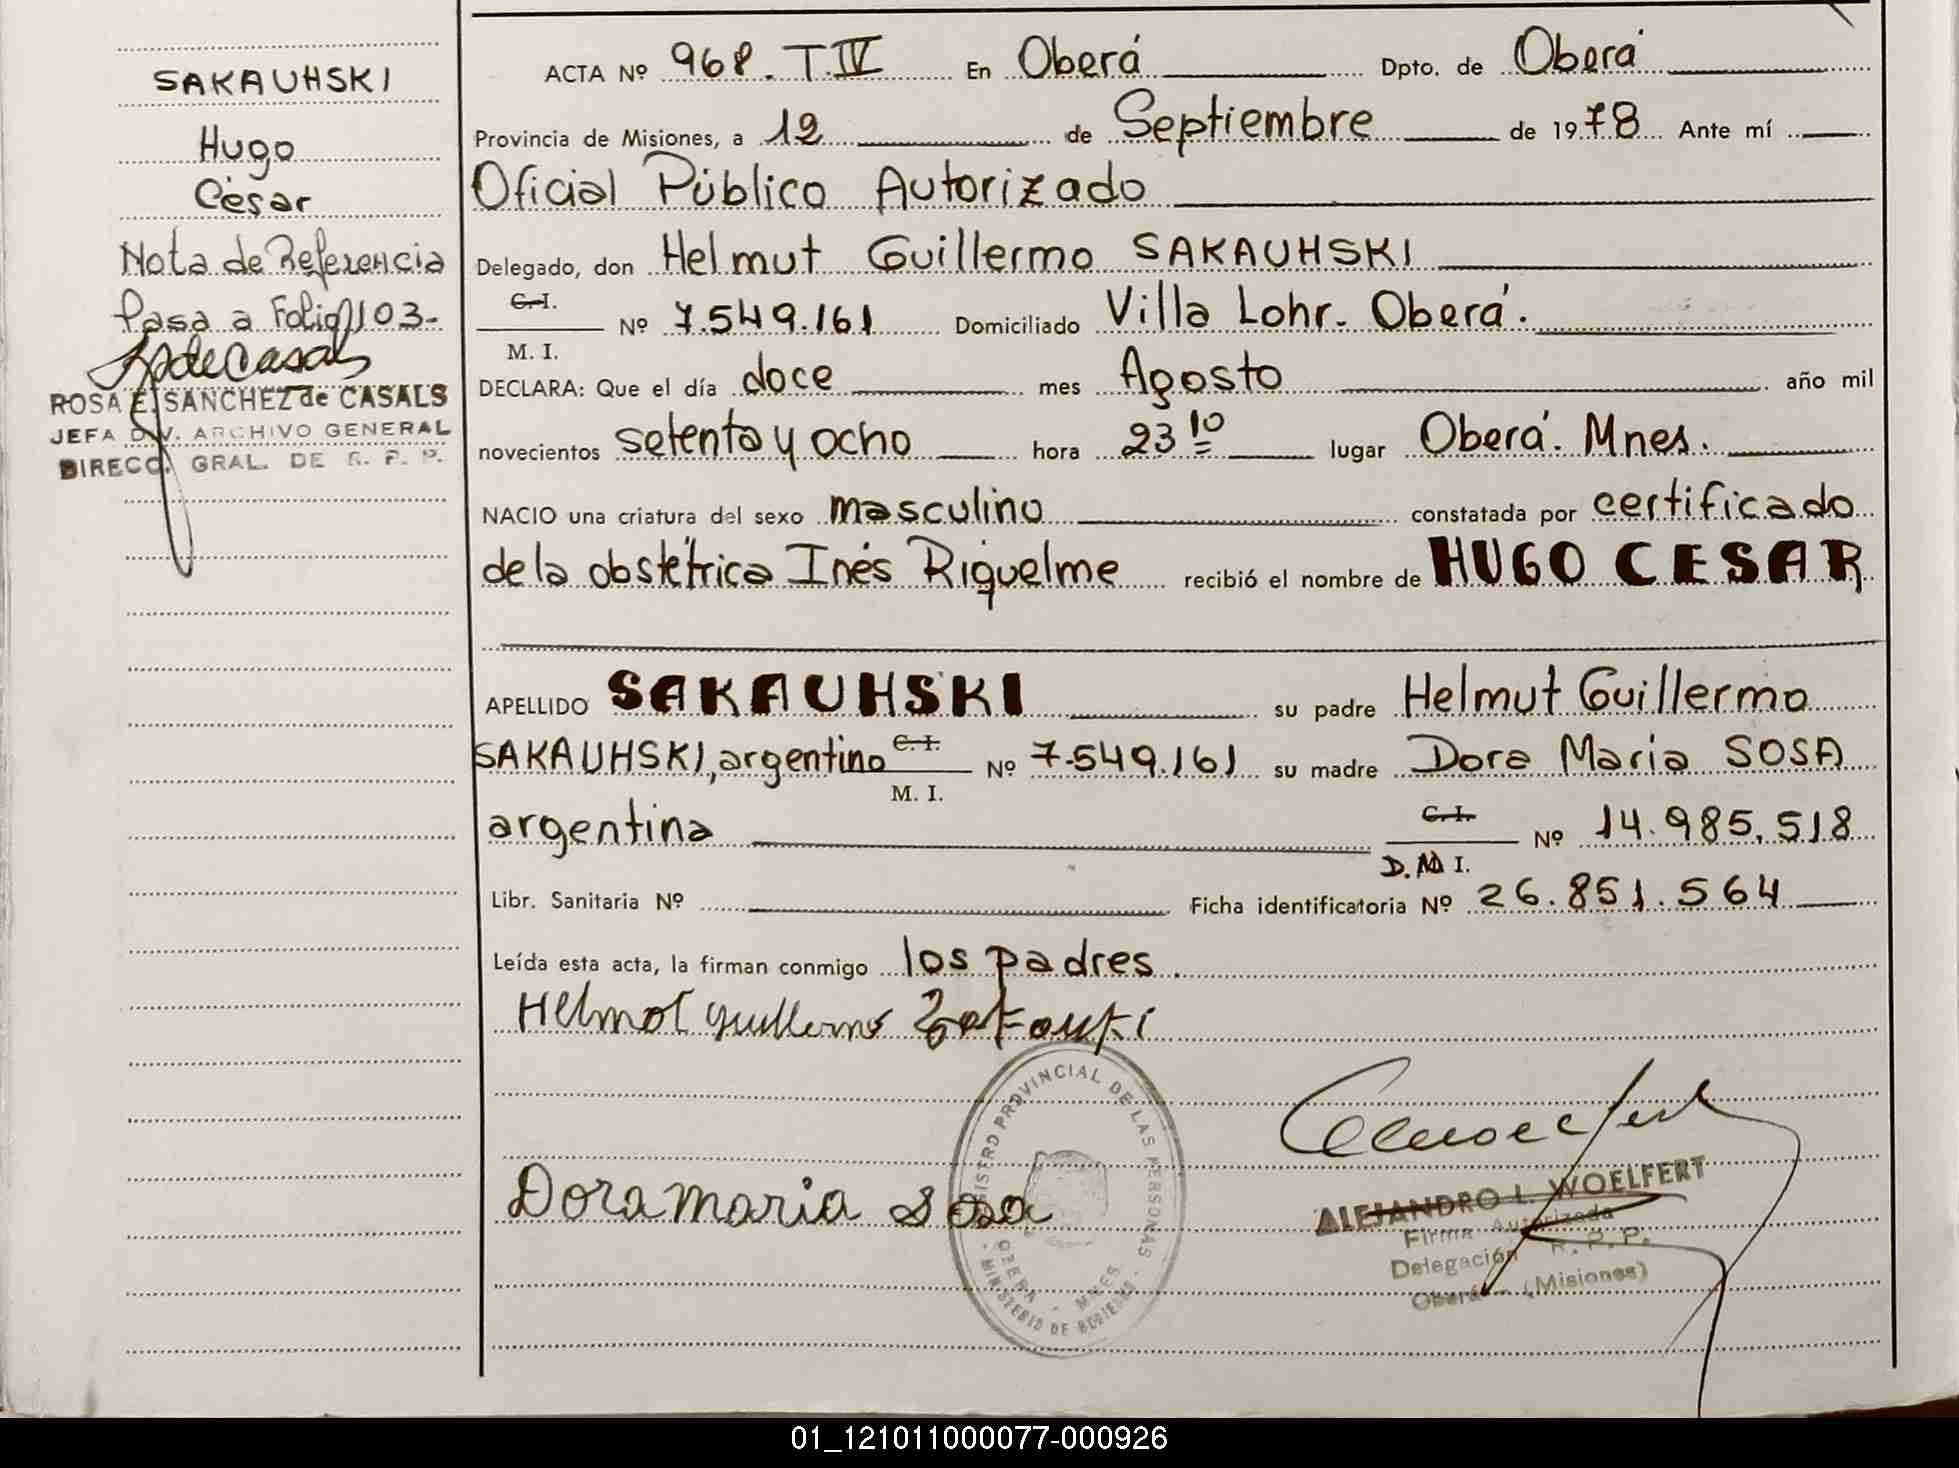 SAKAUHSKI
Hugo
César
Nota de Referencia
Pasa a Folio 103-
ROSA E. SANCHEZ de CASALS
JEFA DIV. ARCHIVO GENERAL
DIRECC. GRAL. DE R. P. P.
ACTA Nº 968. T. IV En Oberá Dpto. de Oberá
Provincia de Misiones, a 12 de Septiembre de 1978 Ante mí
Oficial Público Autorizado
Delegado, don Helmut Guillermo SAKAUHSKI
C. I.
M. I. Nº 7.549.161 Domiciliado Villa Lohr. Oberá.
DECLARA: Que el día doce mes Agosto año mil
novecientos setenta y ocho hora 23 10 lugar Oberá. Mnes.
NACIO una criatura del sexo masculino constatada por certificado
de la obstétrica Inés Riquelme recibió el nombre de HUGO CESAR
APELLIDO SAKAUHSKI su padre Helmut Guillermo
SAKAUHSKI, argentino C. I. M. I. Nº 7.549.161 su madre Dora Maria SOSA
argentina C. I. D. N I. Nº 14.985.518
Libr. Sanitaria Nº Ficha identificatoria Nº 26.851.564
Leída esta acta, la firman conmigo los padres.
Helmot Guillermo
Dora maria sosa
REGISTRO PROVINCIAL DE LAS PERSONAS
OBERA - MNES
MINISTERIO DE GOBIERNO
ALEJANDRO L. WOELFERT
Firma Autorizada
Delegación R. P. P.
Oberá - (Misiones)
01_121011000077-000926